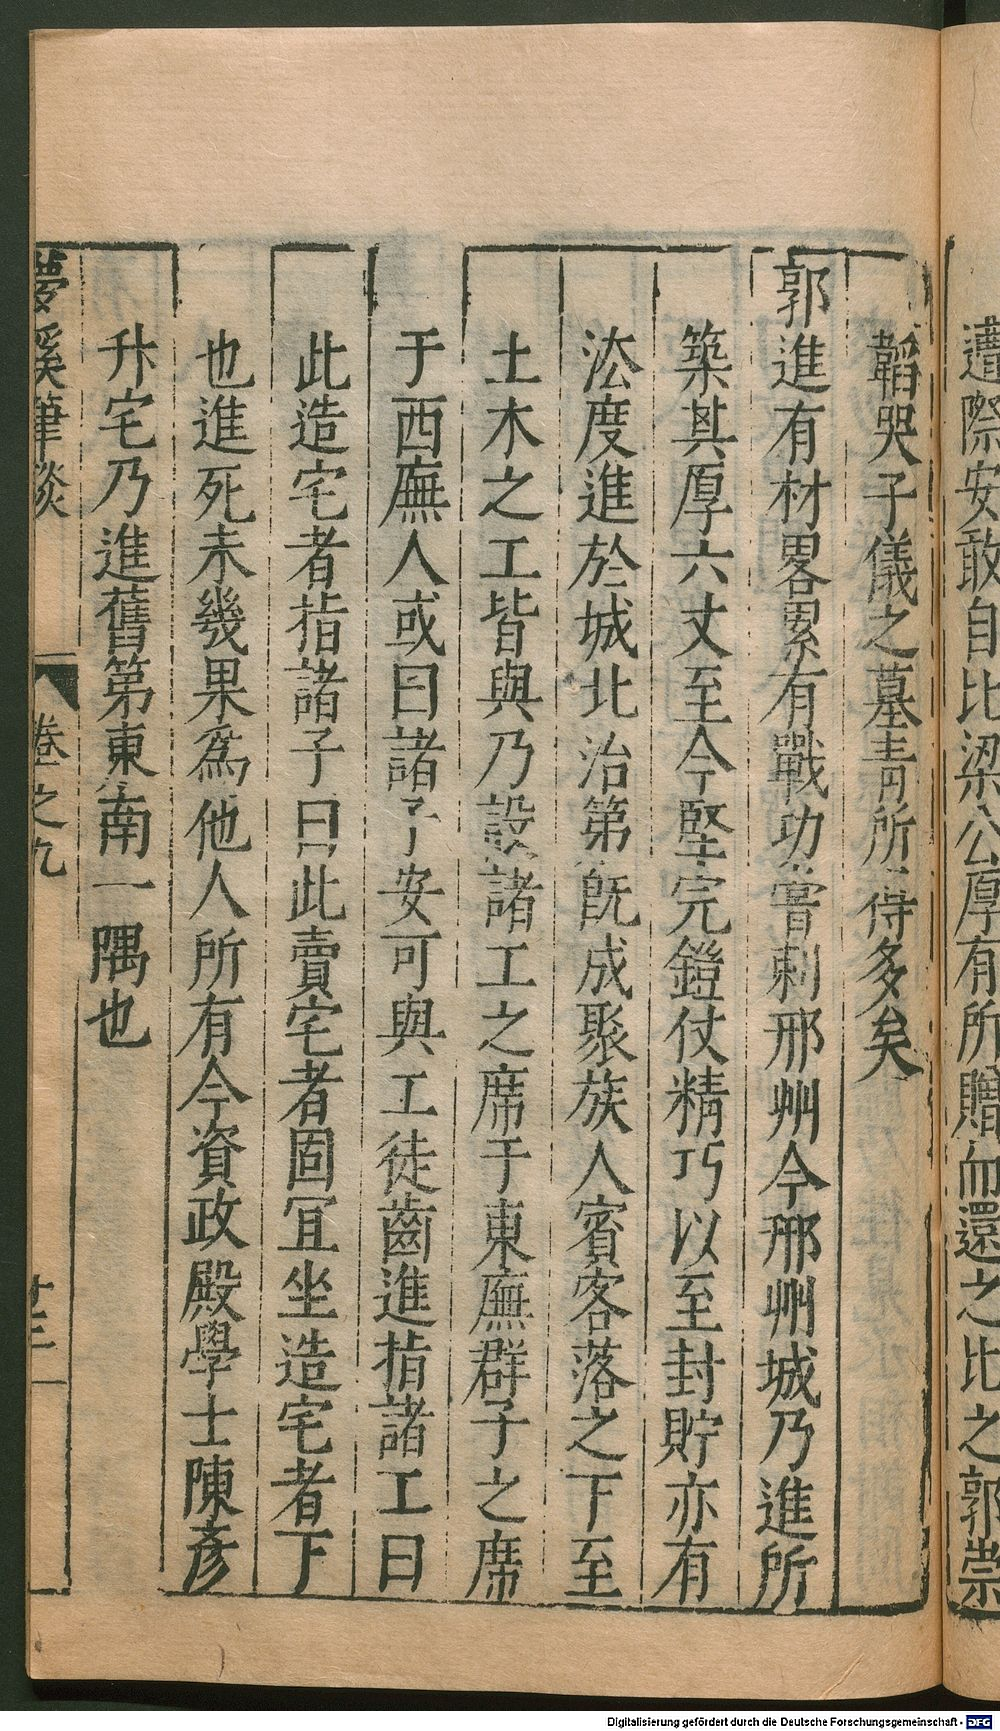 遭際安敢自比梁公厚有所贈而還之比之郭崇
韜哭子儀之墓青所得多矣
郭進有材畧累有戰功嘗刺邢州今邢州城乃進所
築其厚六丈至今堅完鎧仗精巧以至封貯亦有
法度進於城北治第既成聚族人賓客落之下至
土木之工皆與乃設諸工之席于東廡群子之席
于西廡人或曰諸子安可與工徒齒進指諸工曰
此造宅者指諸子曰此賣宅者固冝坐造宅者下
也進死未幾果爲他人所有今資政殿學士陳彥
升宅乃進舊第東南一隅也
夢溪筆談 卷之九 十三
Digitalisierung gefördert durch die Deutsche Forschungsgemeinschaft - DFG